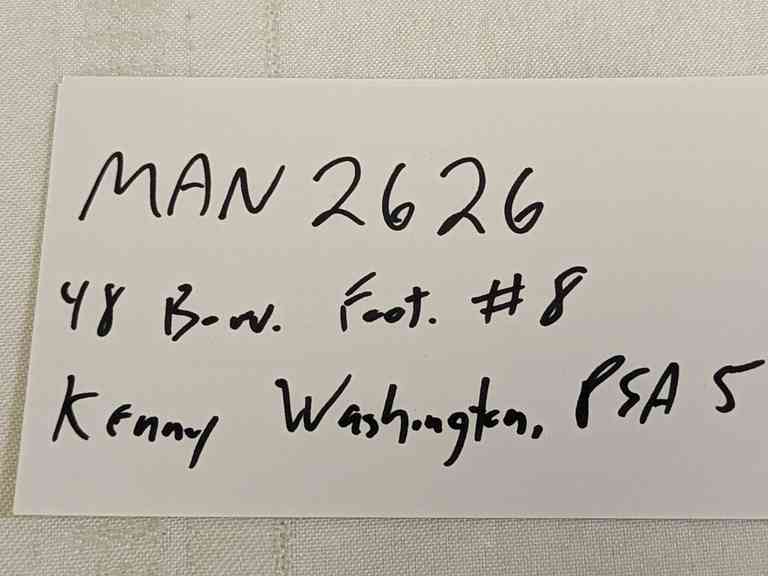 MAN 2626
48 Bow. Foot. #8
Kenny Washington, PSA 5